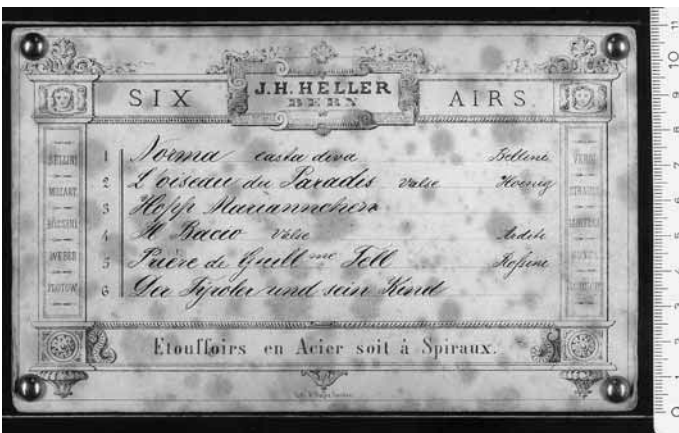 J.H. HELLER
BERN
SIX AIRS.
BELLINI
MOZART
ROSSINI
WEBER
FLOTOW
1 Norma casta diva Bellini
2 L'oiseau du Paradis valse Hoenig
3 Hopp Mariannchen
4 Il Bacio Valse Arditi
5 Prière de Guillme Tell Rossini
6 Der Tyroler und sein Kind
VERDI
STRAUSS
Etouffoirs en Acier soit à Spiraux.
0 1 2 3 4 5 6 7 8 9 10 11